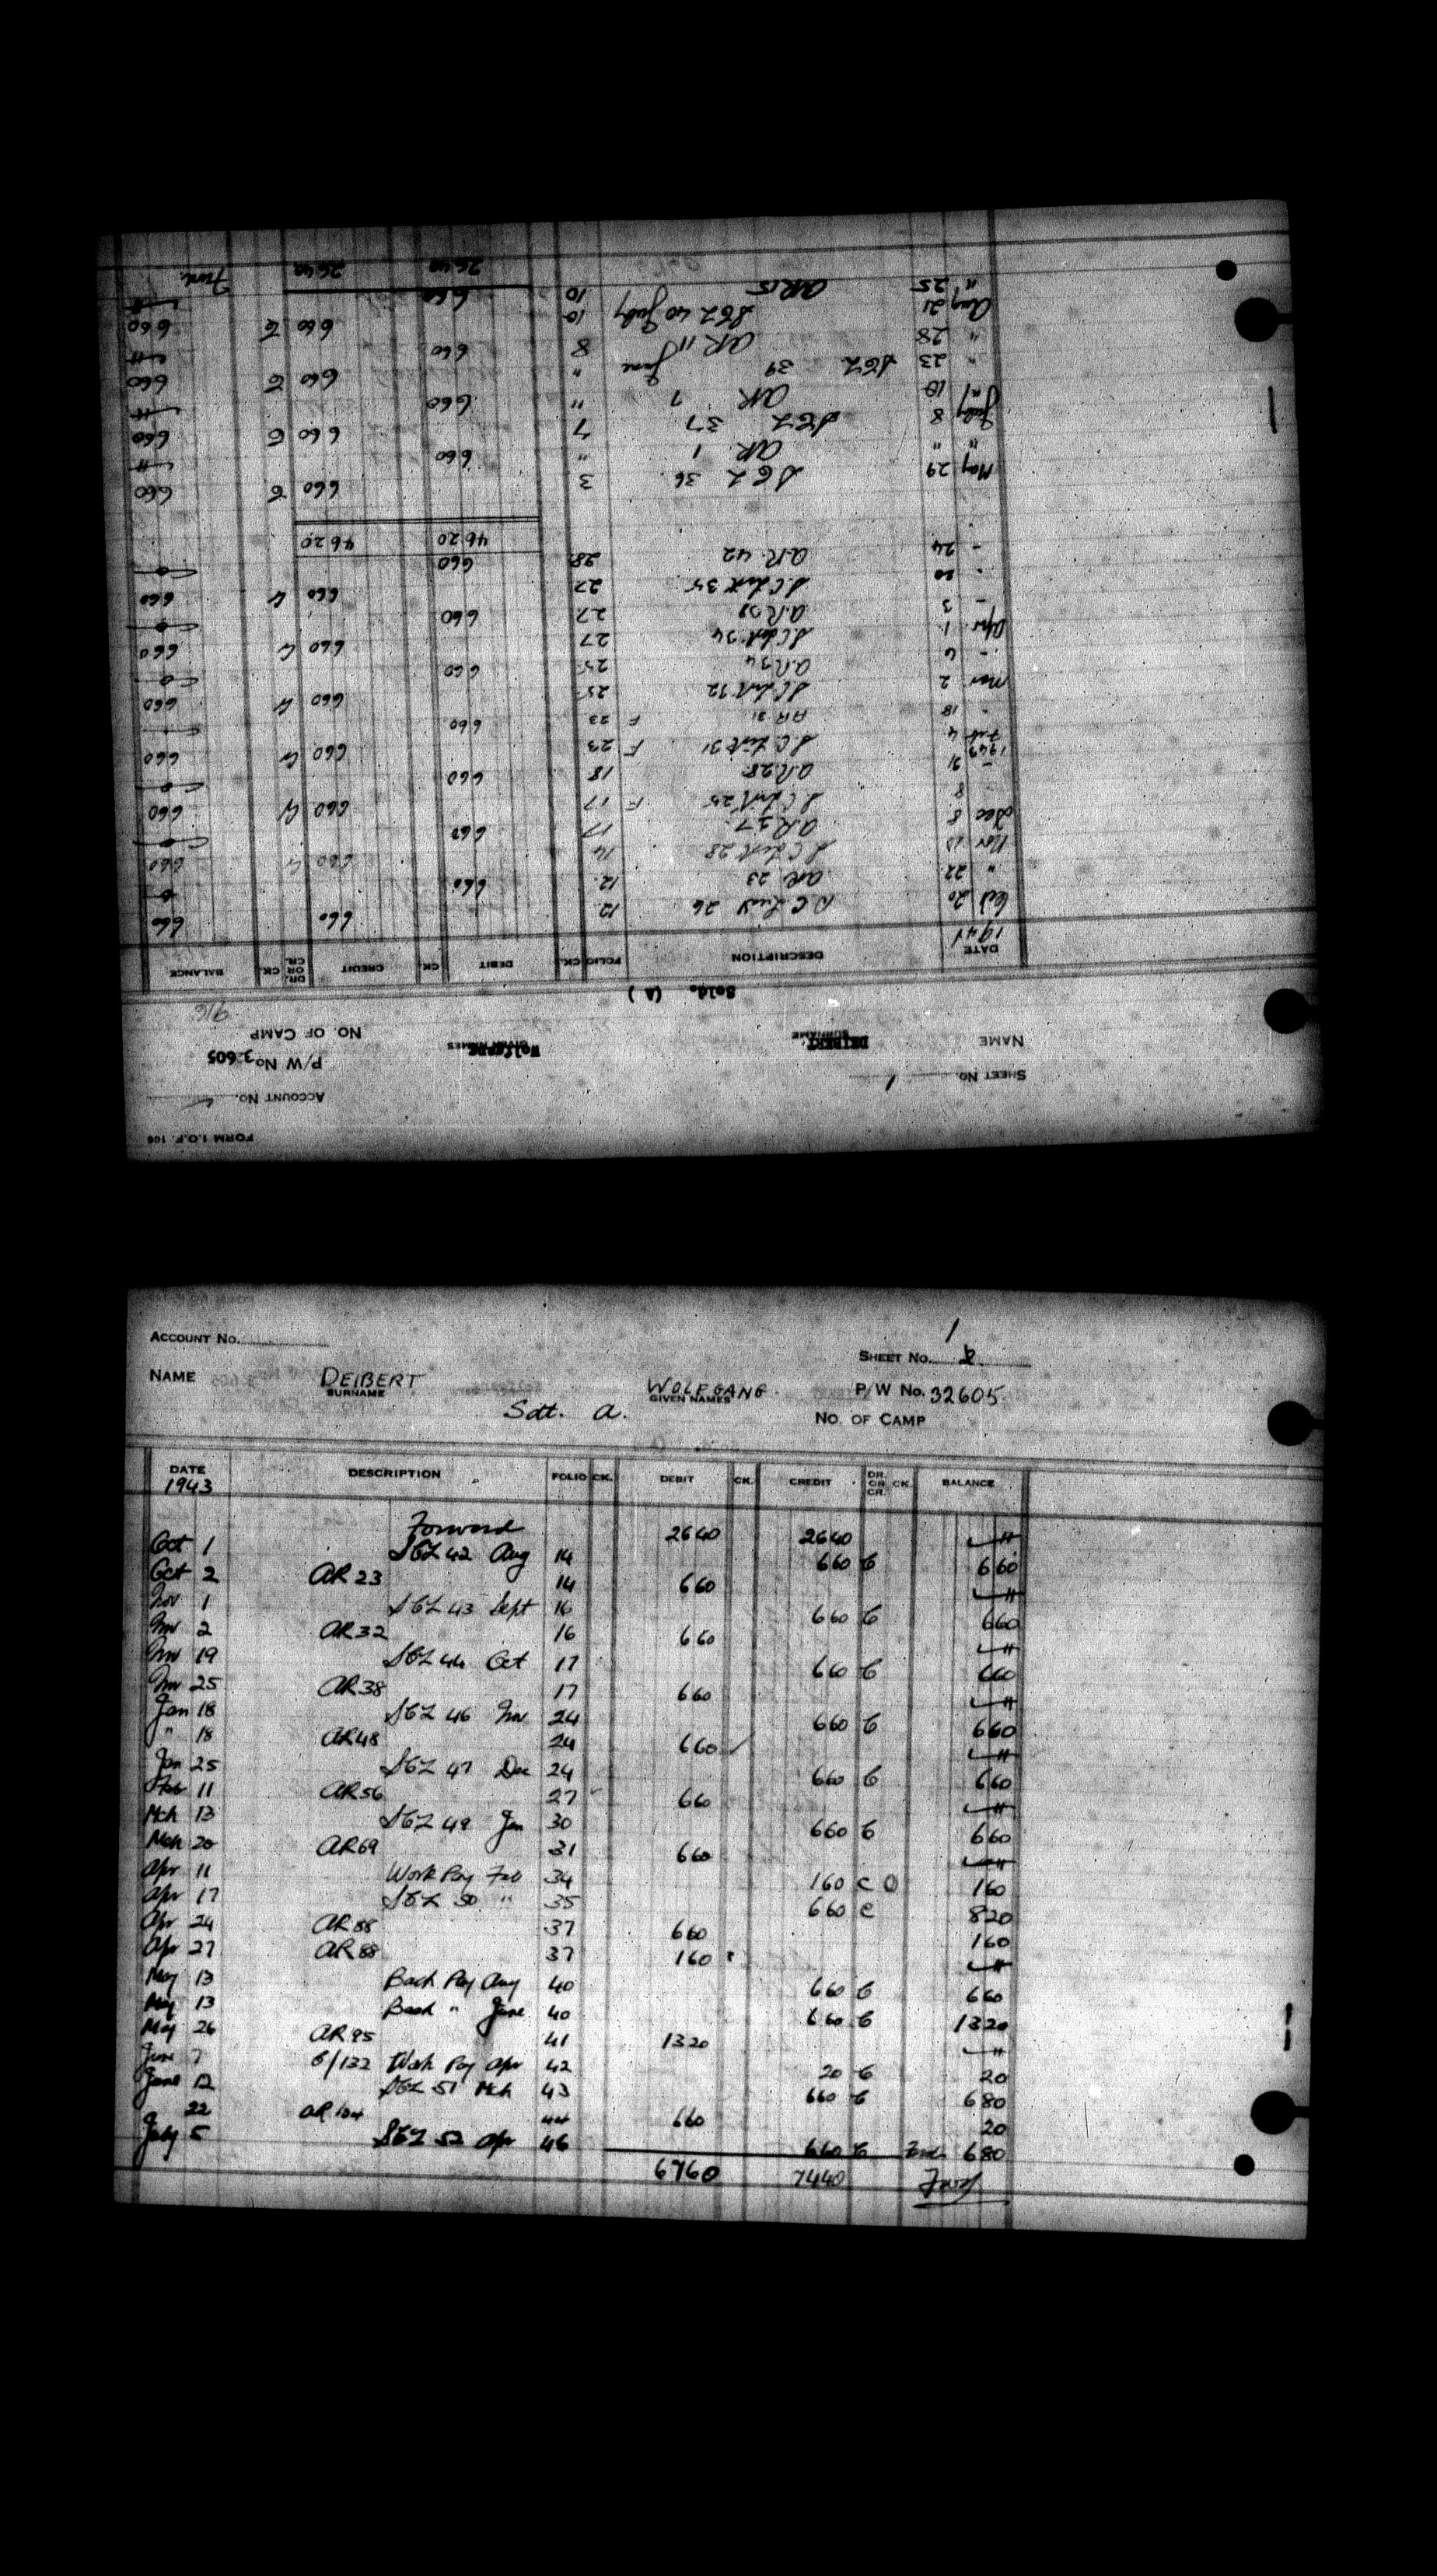 FORM I.O.F. 106
SHEET No. 1 ACCOUNT No.
P/W No. 3.605
NAME DEIBERT Wolfgang NO. OF CAMP
SURNAME GIVEN NAMES
Sold. (A)
DATE DESCRIPTION FOLIO CK. DEBIT CK. CREDIT DR. OR CR. CK. BALANCE
Oct 20 26 12 660 660
" 22 AR 23 12 660
Nov 28 14 660 660
Dec 8 A.R 27 17 660
8 25 F 17 660 660
31 A.R 28 18 660
1943
Feb 4 31 F 23 660 660
" 18 AR 31 F 23 660
Mar 2 32 25 660 660
- 6 A.R 34 25 660
Apr 1 34 27 660 660
- 3 A.R 39 27 660
- 20 35 27 660 660
- 24 A.R. 42 28 660
4620 4620
May 29 SCL 36 3 660 660
" " AR 1 " 660
July 8 SCL 37 7 660 660
10 AR 7 " 660
" 23 SCL 39 June " 660 660
" 28 AR 11 8 660
Aug 21 SCL 40 July 10 660 660
" 25 AR15 10 660
2640 2640 Fwd.
ACCOUNT No. 1
SHEET No. 2
NAME DEIBERT WOLFGANG P/W No. 32605
SURNAME GIVEN NAMES
Sdt. A. NO. OF CAMP
DATE DESCRIPTION FOLIO CK. DEBIT CK. CREDIT DR. OR CR. CK. BALANCE
1943
Forward 2640 2640
Oct 1 SCL 42 Aug 14 660 C 660
Oct 2 AR 23 14 660
Nov 1 SCL 43 Sept 16 660 C 660
Nov 2 AR 32 16 660
Nov 19 SCL 44 Oct 17 660 C 660
Nov 25 AR 38 17 660
Jan 18 SCL 46 Nov 24 660 C 660
" 18 AR 48 24 660
Jan 25 SCL 47 Dec 24 660 C 660
Feb 11 AR 56 27 660
Mch 13 SCL 49 Jan 30 660 C 660
Mch 20 AR 69 31 660
Apr 11 Work Pay Feb 34 160 C 160
Apr 17 SCL 50 " 35 660 C 820
Apr 24 AR 88 37 660 160
Apr 27 AR 88 37 160
May 13 Back Pay Aug 40 660 C 660
May 13 Back " June 40 660 C 1320
May 26 AR 95 41 1320
June 7 6/132 Work Pay Apr 42 20 C 20
June 12 SCL 51 Mch 43 660 C 680
22 AR 104 44 660 20
July 5 SCL 52 Apr 46 660 C 680
6760 7440 Fwd